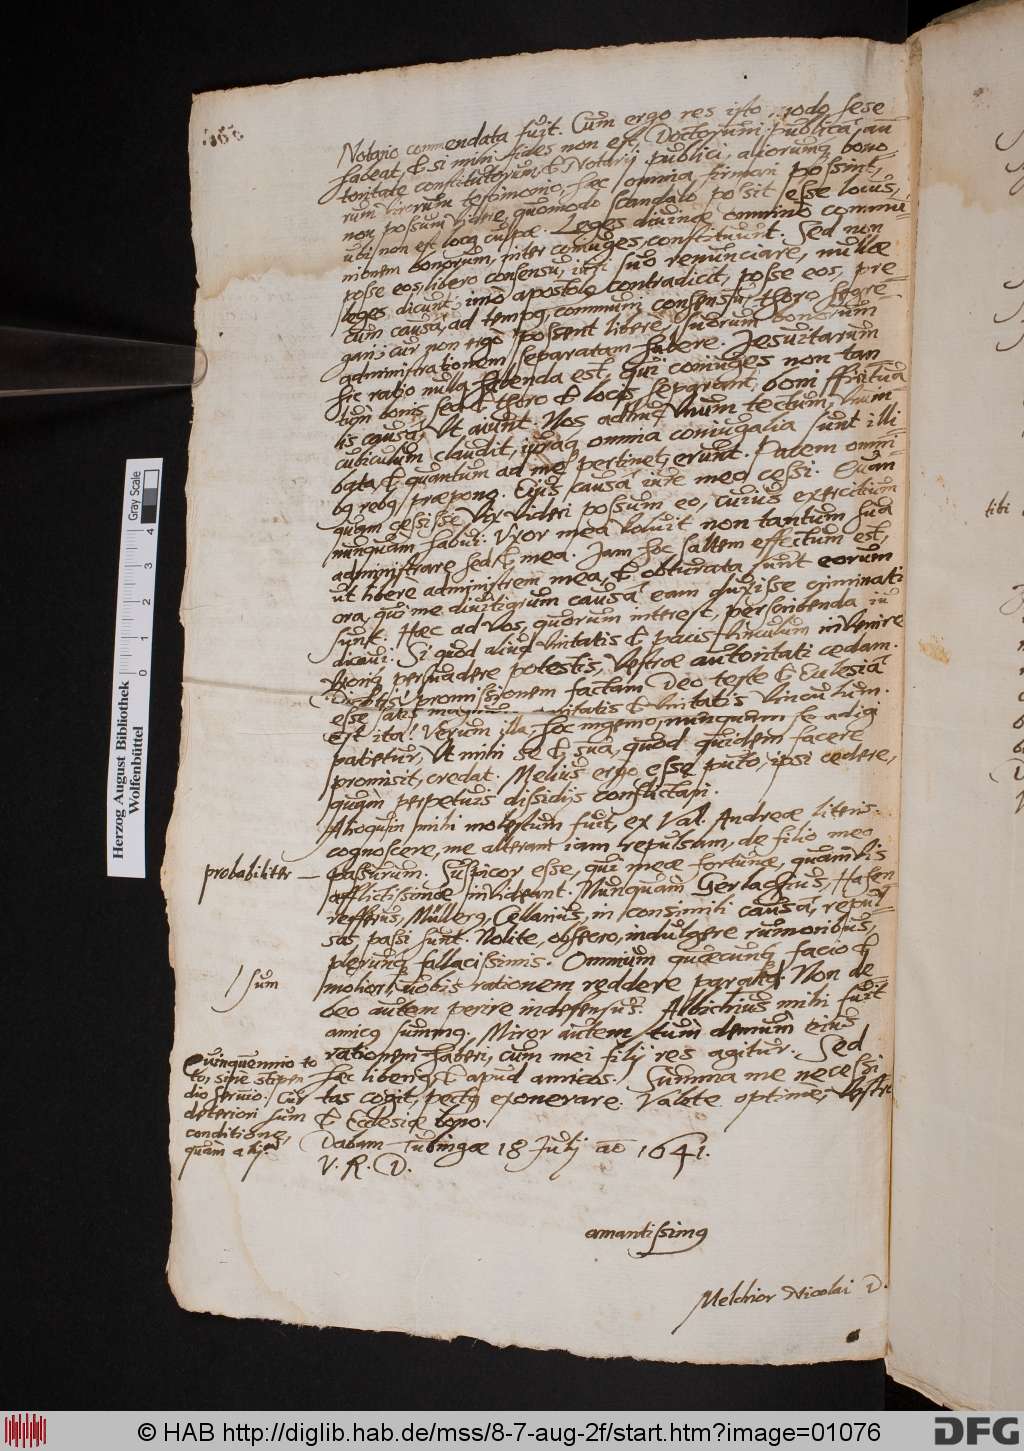 Notario commendata fuit. Cum ergo res isto modo sese
habeat, & si mihi fides non est, Doctorum publica au-
toritate constitutorum, & Notarij publici, aliorumq bono-
rum virorum testimonio, hæc omnia firmari possint,
non possum videre, quomodo scandalo possit esse locus,
ubi non est locq culpæ. Leges divinæ omnino commu-
nionem bonorum, inter coniuges, constituunt. Sed non
posse eos, libero consensu, iuri suo renunciare, nullæ
leges dicunt: imò apostolq contradicit, posse eos, pre-
cum causa, ad tempq, communi consensu, thoro segre-
gari: cur non ergò possent libere, suorum bonorum
administrationem separatam habere. Jesuitarum
hic ratio nulla habenda est, qui coniuges non tan
tùm bonis, sed & thoro & locis separant, boni spiritua
lis causa, ut aiunt. Nos adhuc unum tectum, unum
cubiculum claudit, iuraq omnia coniugalia sunt illi-
bata, & quantum ad me pertinet, erunt. Pacem omni-
bq rebq præpono. Ejus causa iure meo cessi. Quan
quam cessisse vix videri possum eo, cuius exercitium
nunquam habui. Vxor mea voluit non tantum sua
administrare sed & mea. Jam hoc saltem effectum est,
ut libere administrem mea, & obturata sunt eorum
ora, qui me divitiarum causa eam duxisse criminati
sunt. Hæc ad vos, quorum interest, perscribenda iu
dicavi. Si quod aliud unitatis & pacis vinculum invenire
Vxoriq persuadere potestis, Vestræ autoritati cedam.
Dicetis: promissionem factam Deo teste & Ecclesia
esse satis magnum unitatis & unitatis vinculum.
Est ita! Verum illa, hoc ingenio, nunquam se adigi
patietur, Ut mihi se & sua, quod quidem facere
promisit, credat. Melius ergo esse puto, ipsi cedere,
quam perpetuis dissidijs conflictari.
Alioquin mihi molestum fuit, ex Val. Andreæ literis
cognoscere, me alteram iam repulsam, de filio meo
probabiliter
passurum. Suspicor esse, qui meæ fortunæ, quamvis
afflictissimæ invideant. Nunquam Gerlachius, Hafen-
refferus, Müllerq, Cellarius, in consimili causa, repul-
sas passi sunt. Nolite, obsecro, indulgere rumoribus,
plerunq fallacissimis. Omnium quæcunq facio &
sum
molior, vobis rationem reddere paratq. Non de
beo autem perire indefensus. Albichius mihi fuit
amicq summq. Miror autem tum demum ejus
rationem haberi, cum mei filij res agitur. Sed
Quinquennio to
to, sine stipen
dio servio. Cur
deteriori sum
conditione,
quam alij?
hæc liberius & apud amicos. Summa me necessi
tas cogit, pectq exonerare. Valete optimè, Vestro
& Ecclesiæ bono.
Dabam Tubingæ 18 Julij aõ 1641.
V. R. D.
amantissimq
Melchior Nicolai D.
Gray Scale
0 1 2 3 4
Herzog August Bibliothek
Wolfenbüttel
tibi
© HAB http://diglib.hab.de/mss/8-7-aug-2f/start.htm?image=01076
DFG